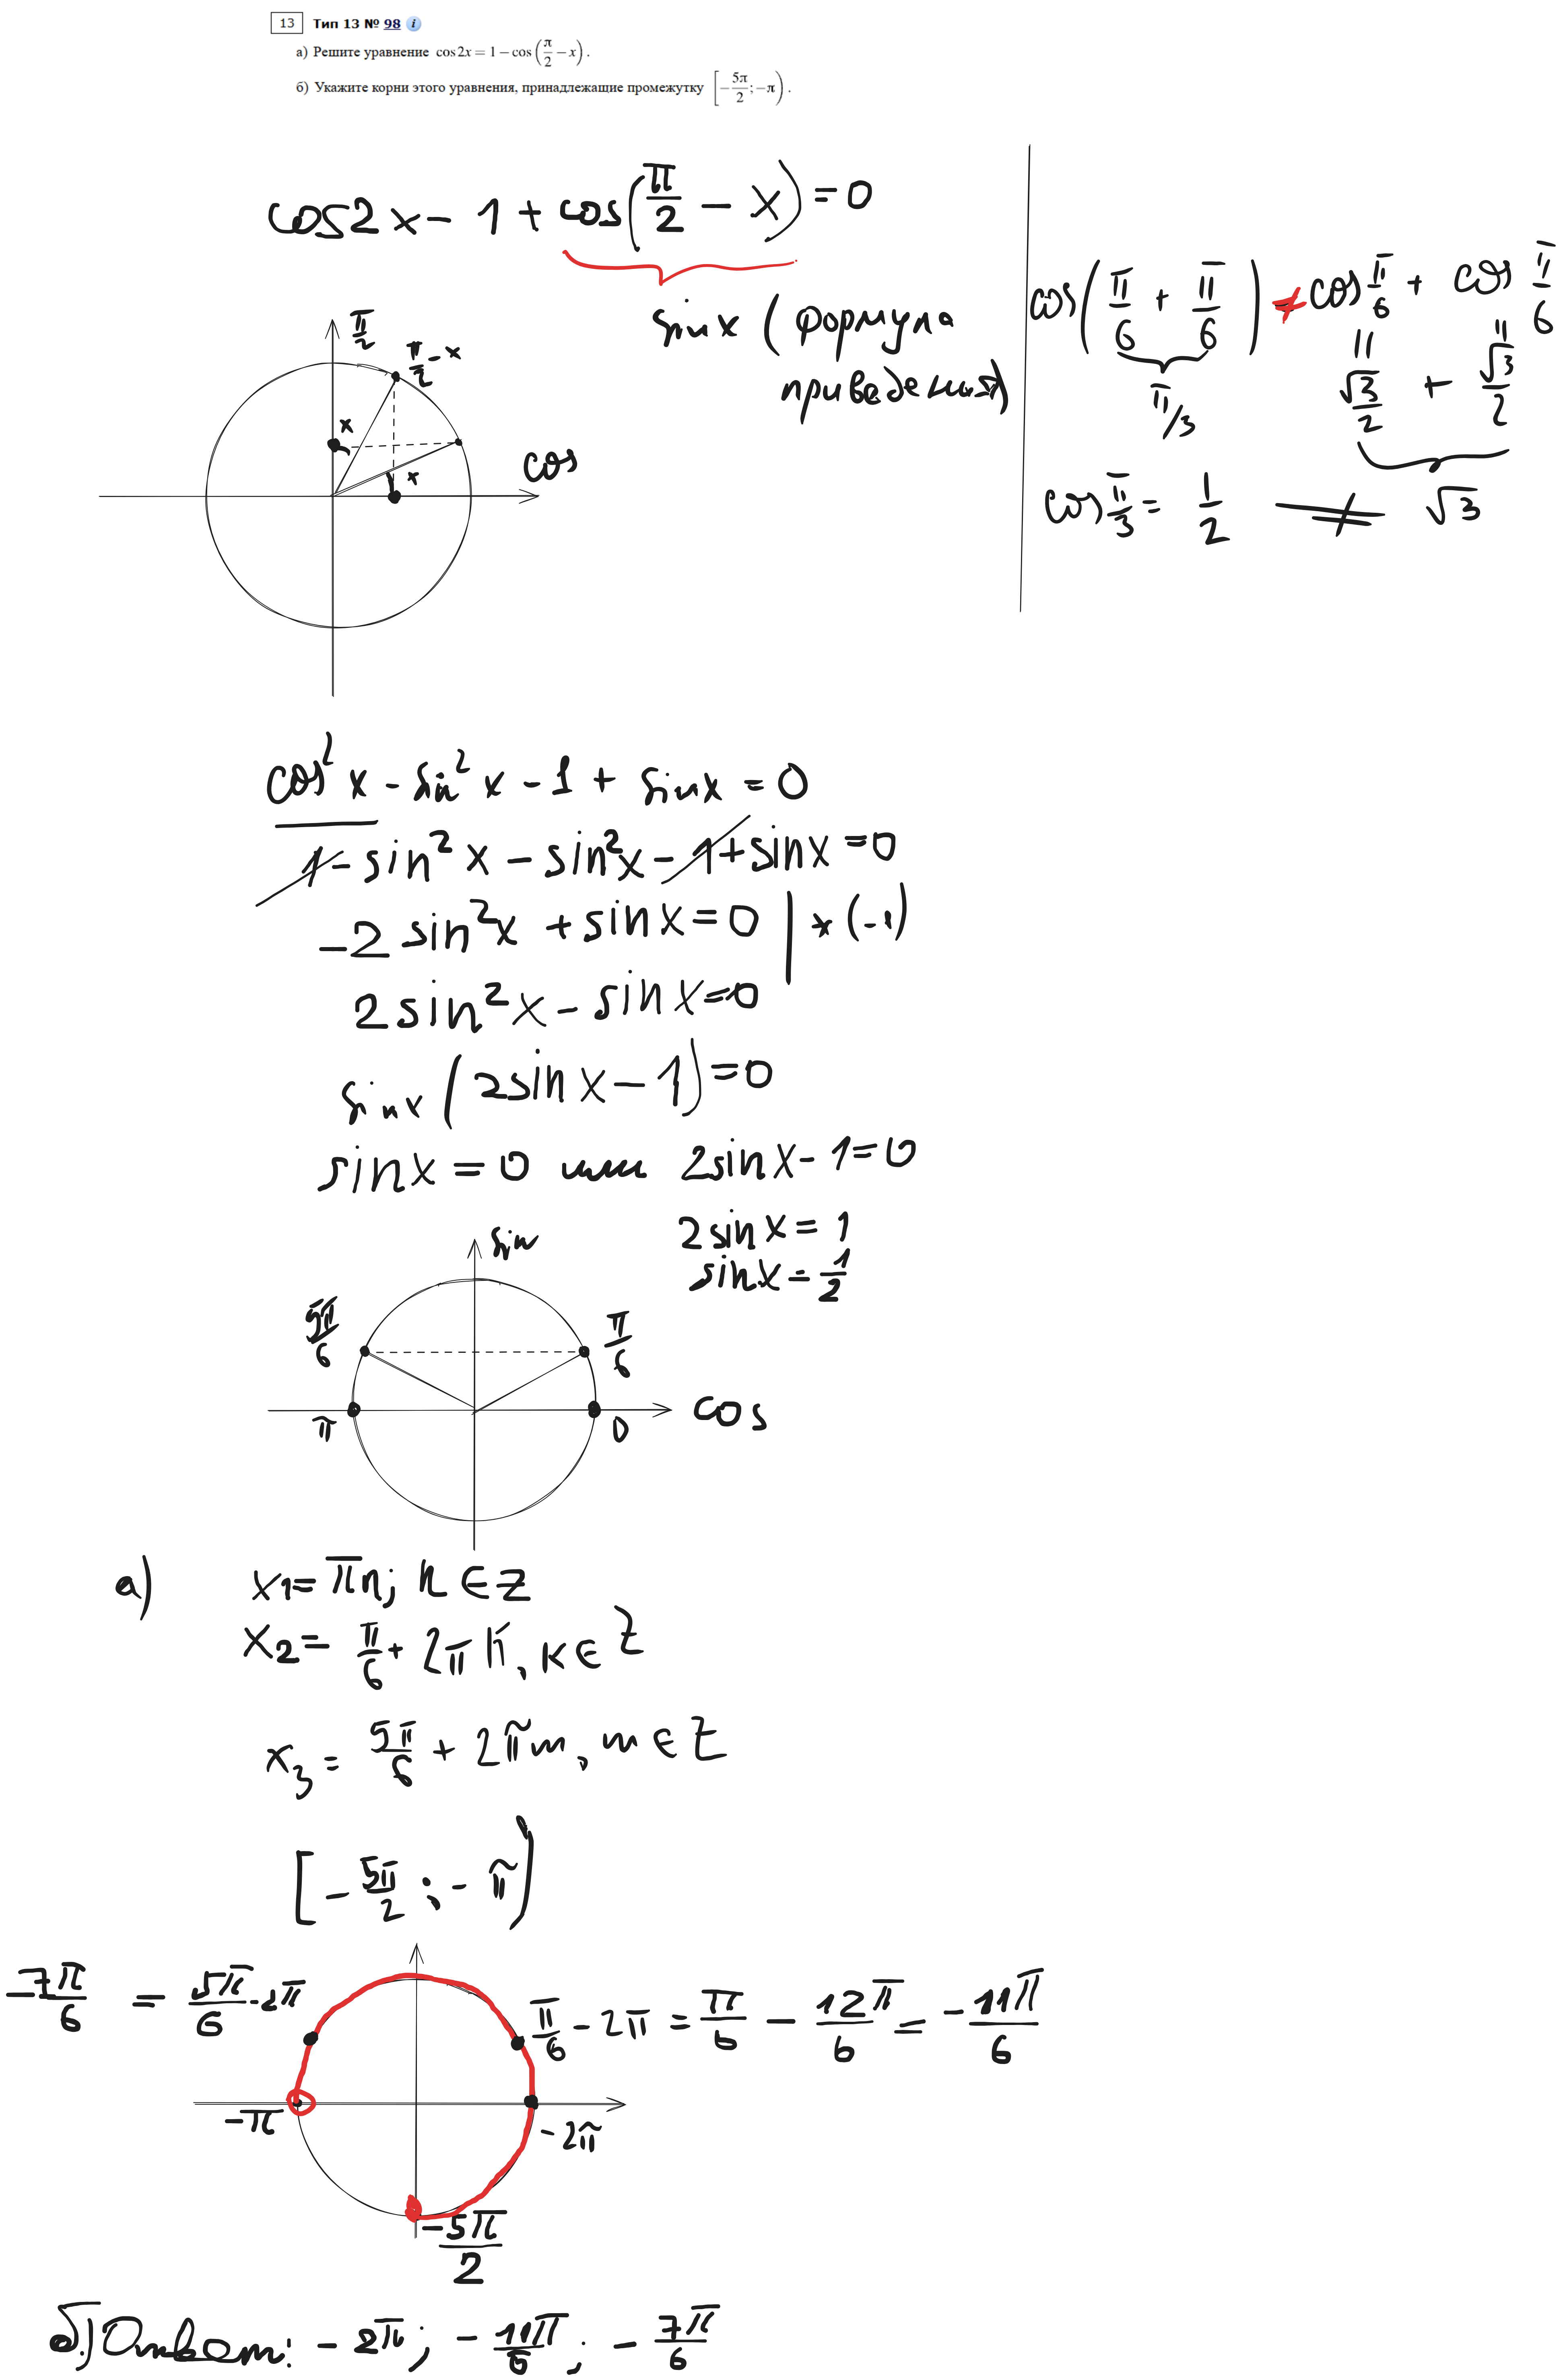 13 Тип 13 № 98 i
а) Решите уравнение cos 2x = 1 − cos (π/2 − x).
б) Укажите корни этого уравнения, принадлежащие промежутку [−5π/2; −π).
cos2x − 1 + cos(π/2 − x) = 0
sinx (формула
приведения)
cos(π/6 + π/6) ≠ cos π/6 + cos π/6
π/3
√3/2 + √3/2
cos π/3 = 1/2 ≠ √3
π/2
π/2 − x
x
x
cos
cos²x − sin²x − 1 + sinx = 0
1 − sin²x − sin²x − 1 + sinx = 0
−2 sin²x + sinx = 0 | * (−1)
2sin²x − sinx = 0
sinx (2sinx − 1) = 0
sinx = 0 или 2sinx − 1 = 0
2sinx = 1
sinx = 1/2
sin
5π/6
π/6
π
0
cos
а) x1 = πn; n ∈ Z
x2 = π/6 + 2πk, k ∈ Z
x3 = 5π/6 + 2πm, m ∈ Z
[−5π/2; −π)
−7π/6 = 5π/6 − 2π
π/6 − 2π = π/6 − 12π/6 = −11π/6
−π
−2π
−5π/2
б) Ответ: −2π; −11π/6; −7π/6